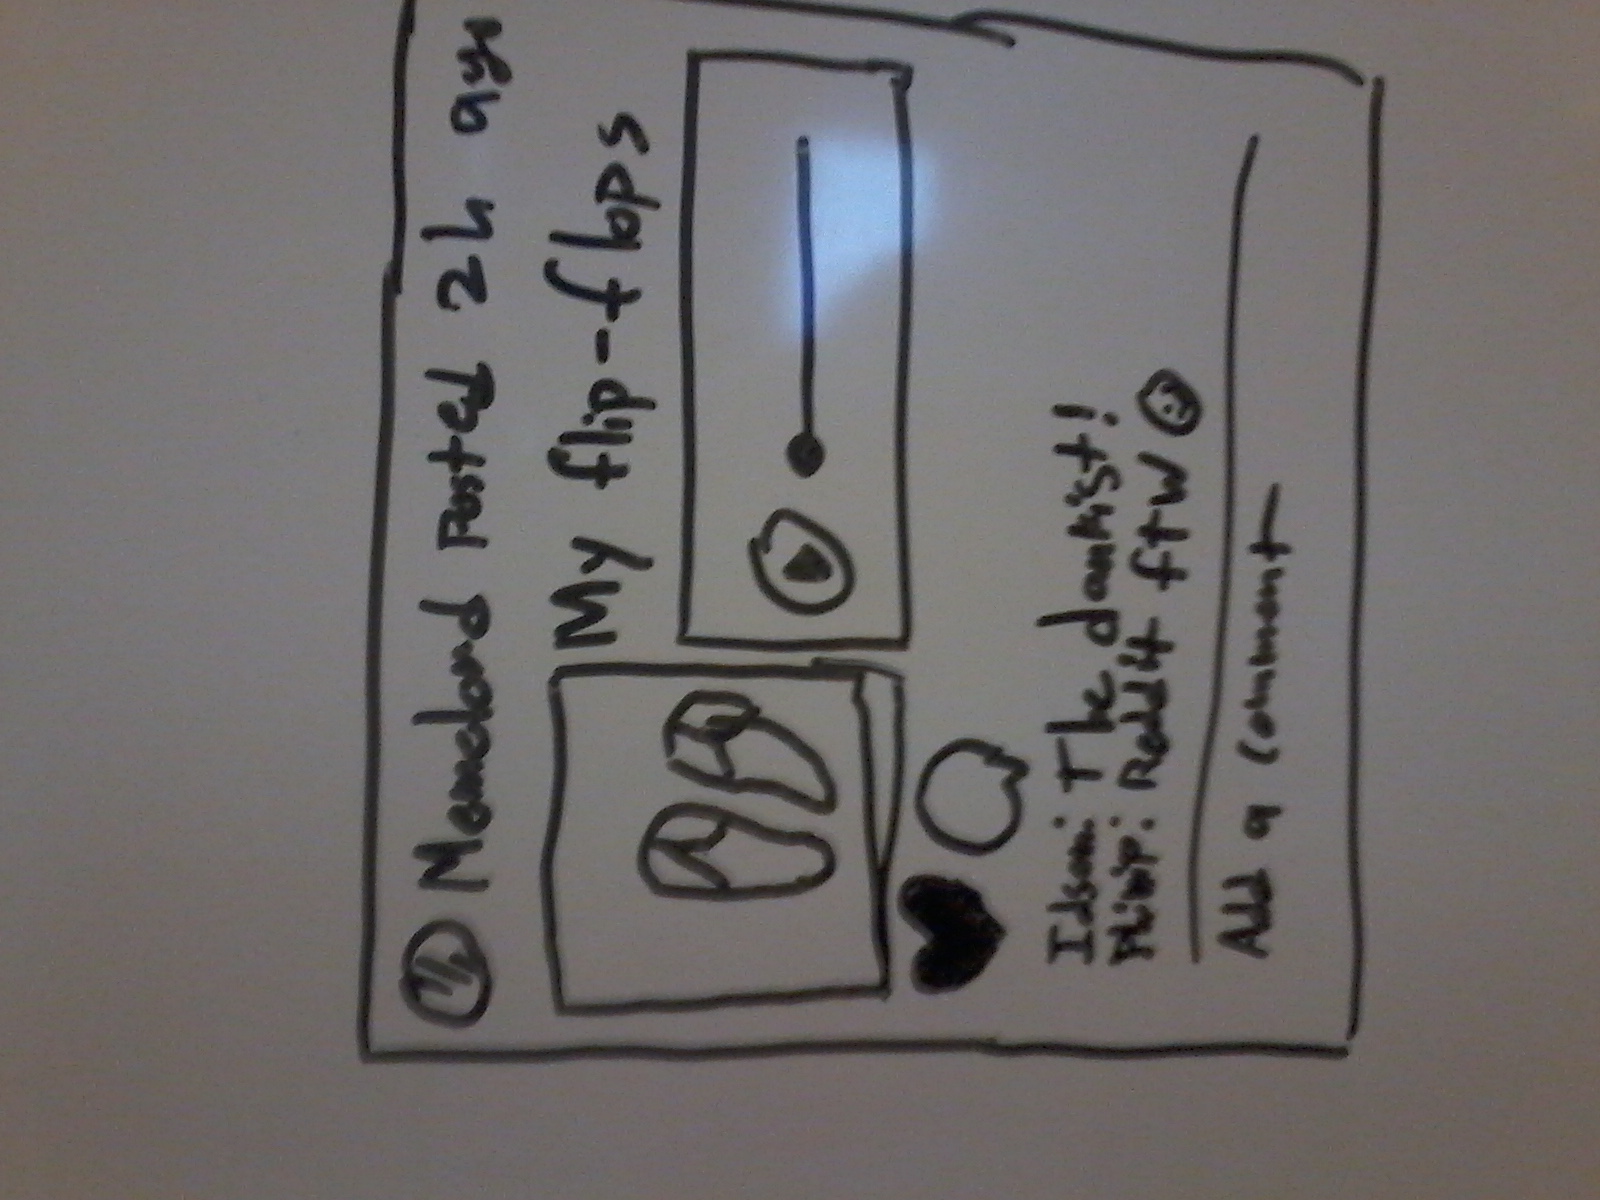 Memelord Posted 2h ago
My flip-flops
The dankist!
Reddit ftw
Add a comment